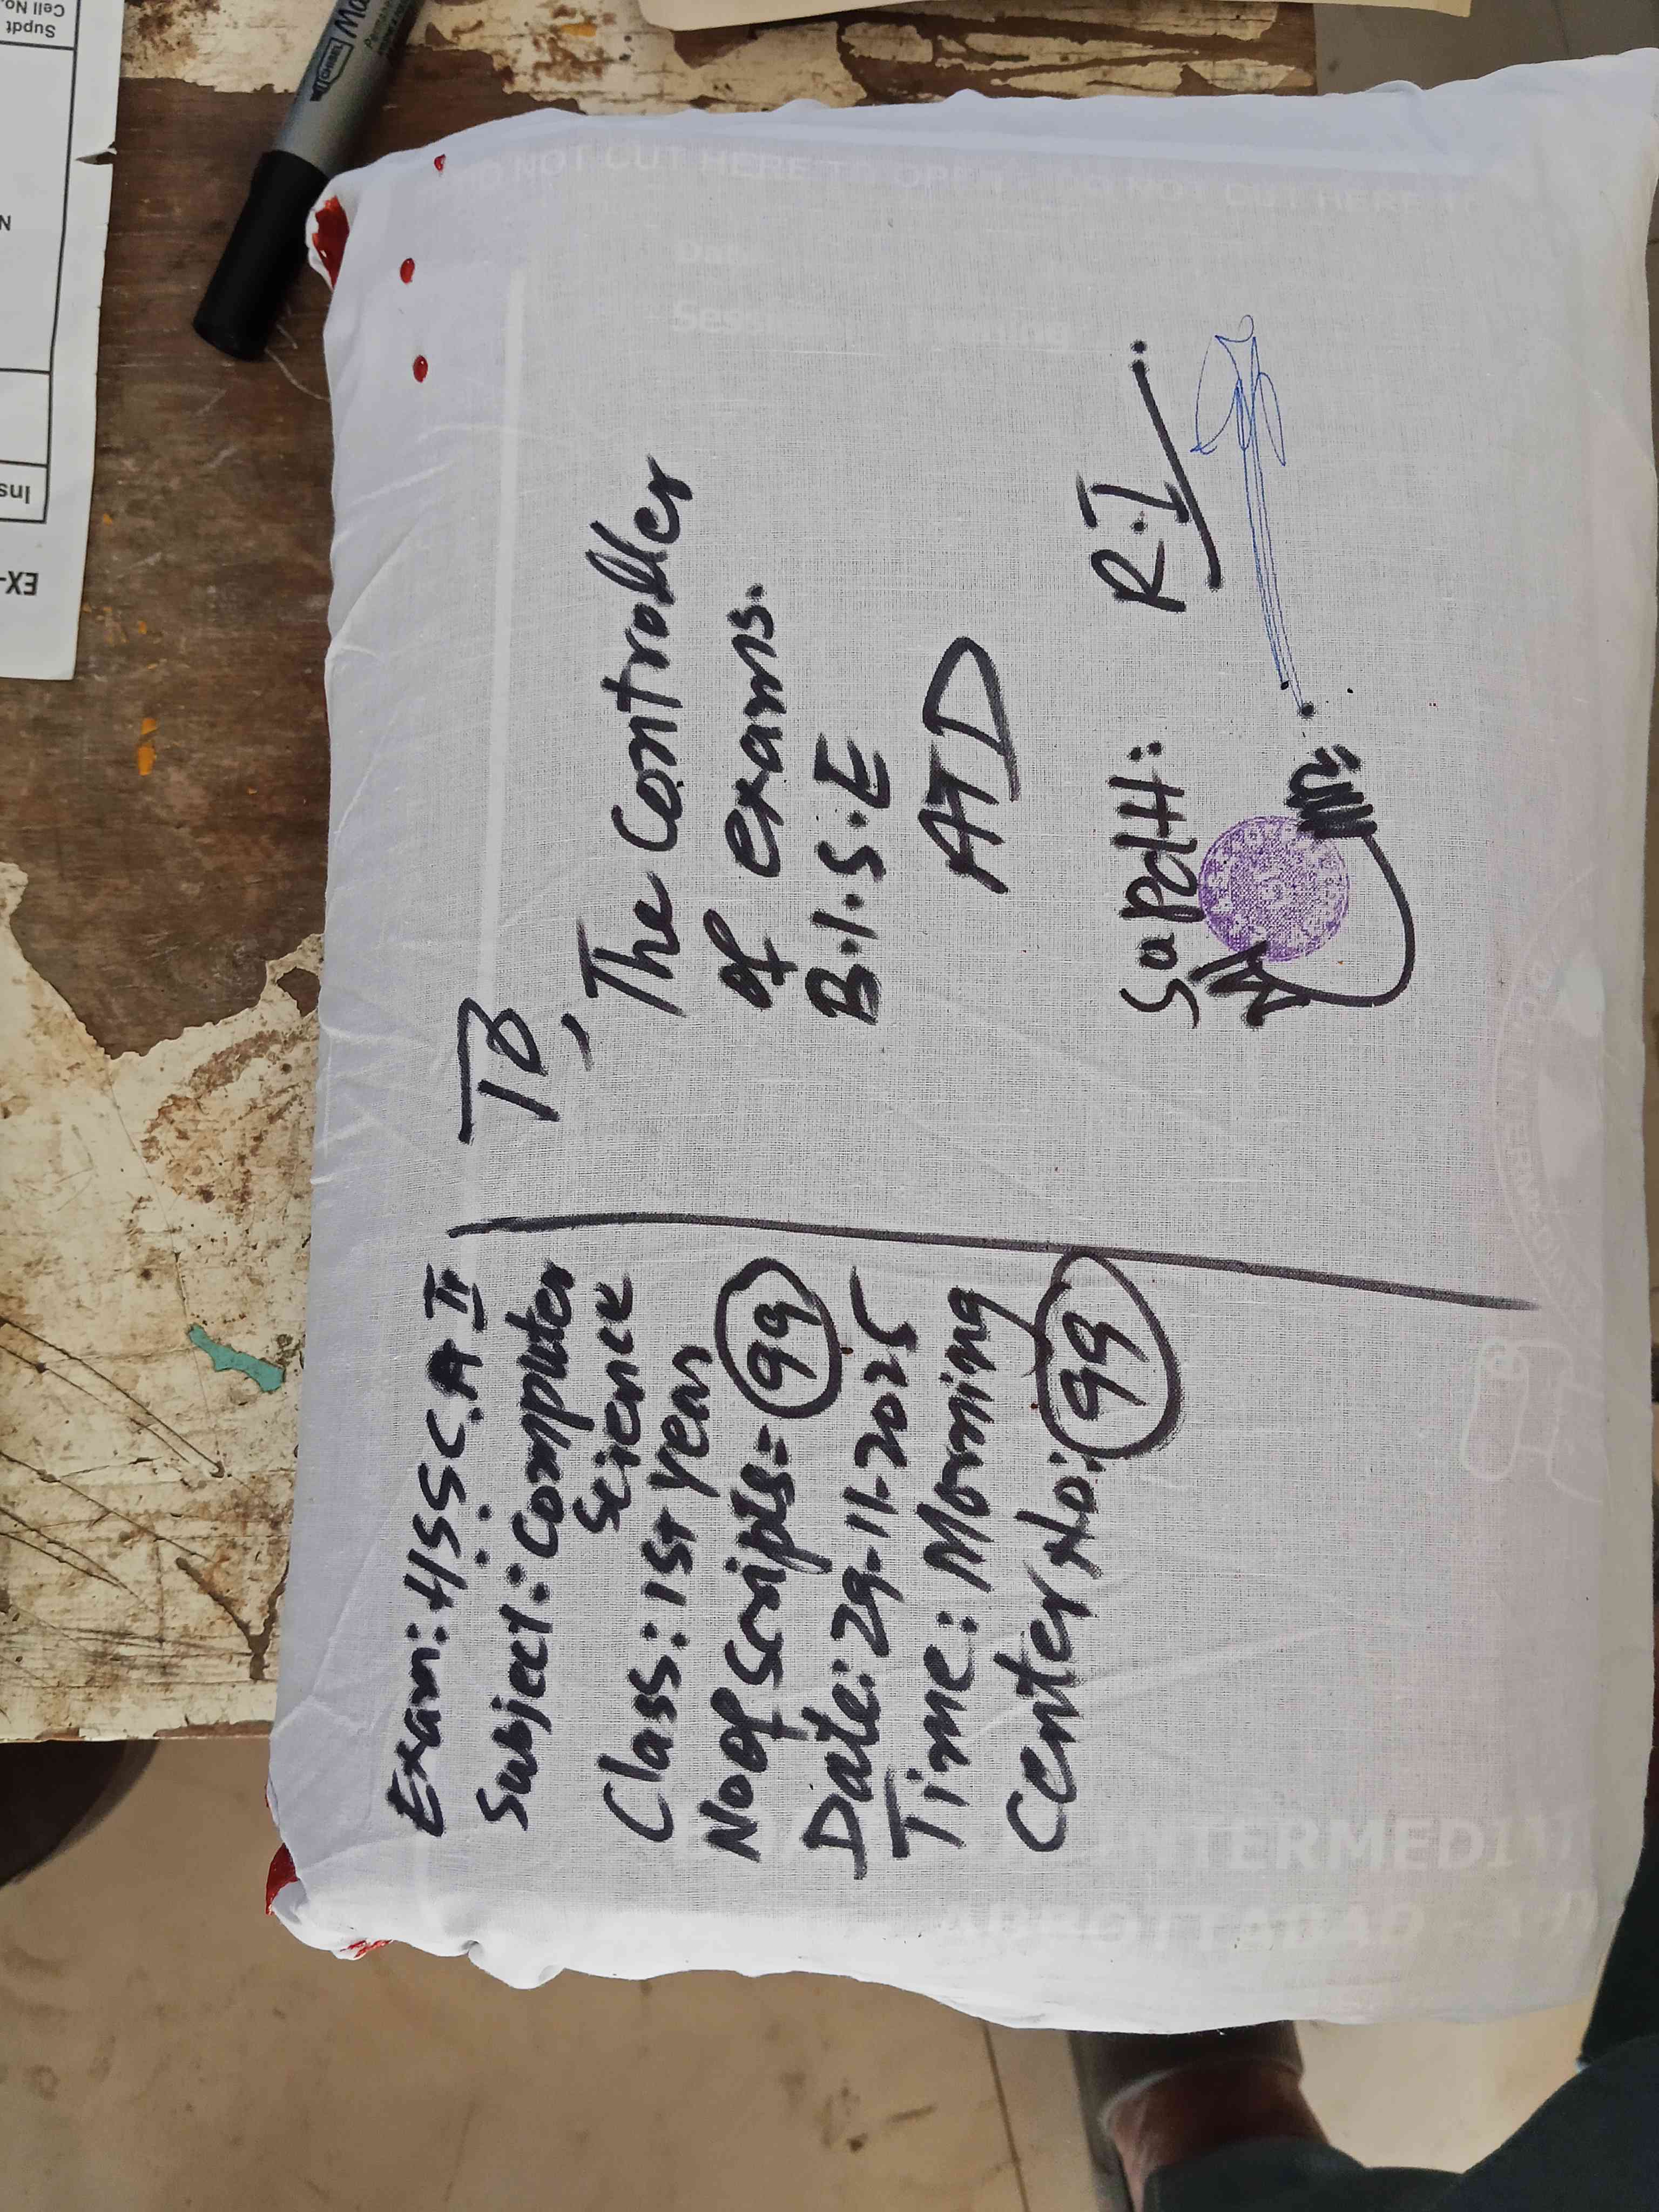 Exam: H.S.S.C.A II
Subject: Computer
Science
Class: 1st year
No of Scripts = 99
Date: 29-11-2025
Time: Morning
Center No: 99
To,
The Controller
of exams.
B.I.S.E
ATD
Supdtt:
R.I
DO NOT CUT HERE TO OPEN
DO NOT CUT HERE
INTERMEDI
ABBOTTABAD
Supdt
Cell No.
Ins
EX-